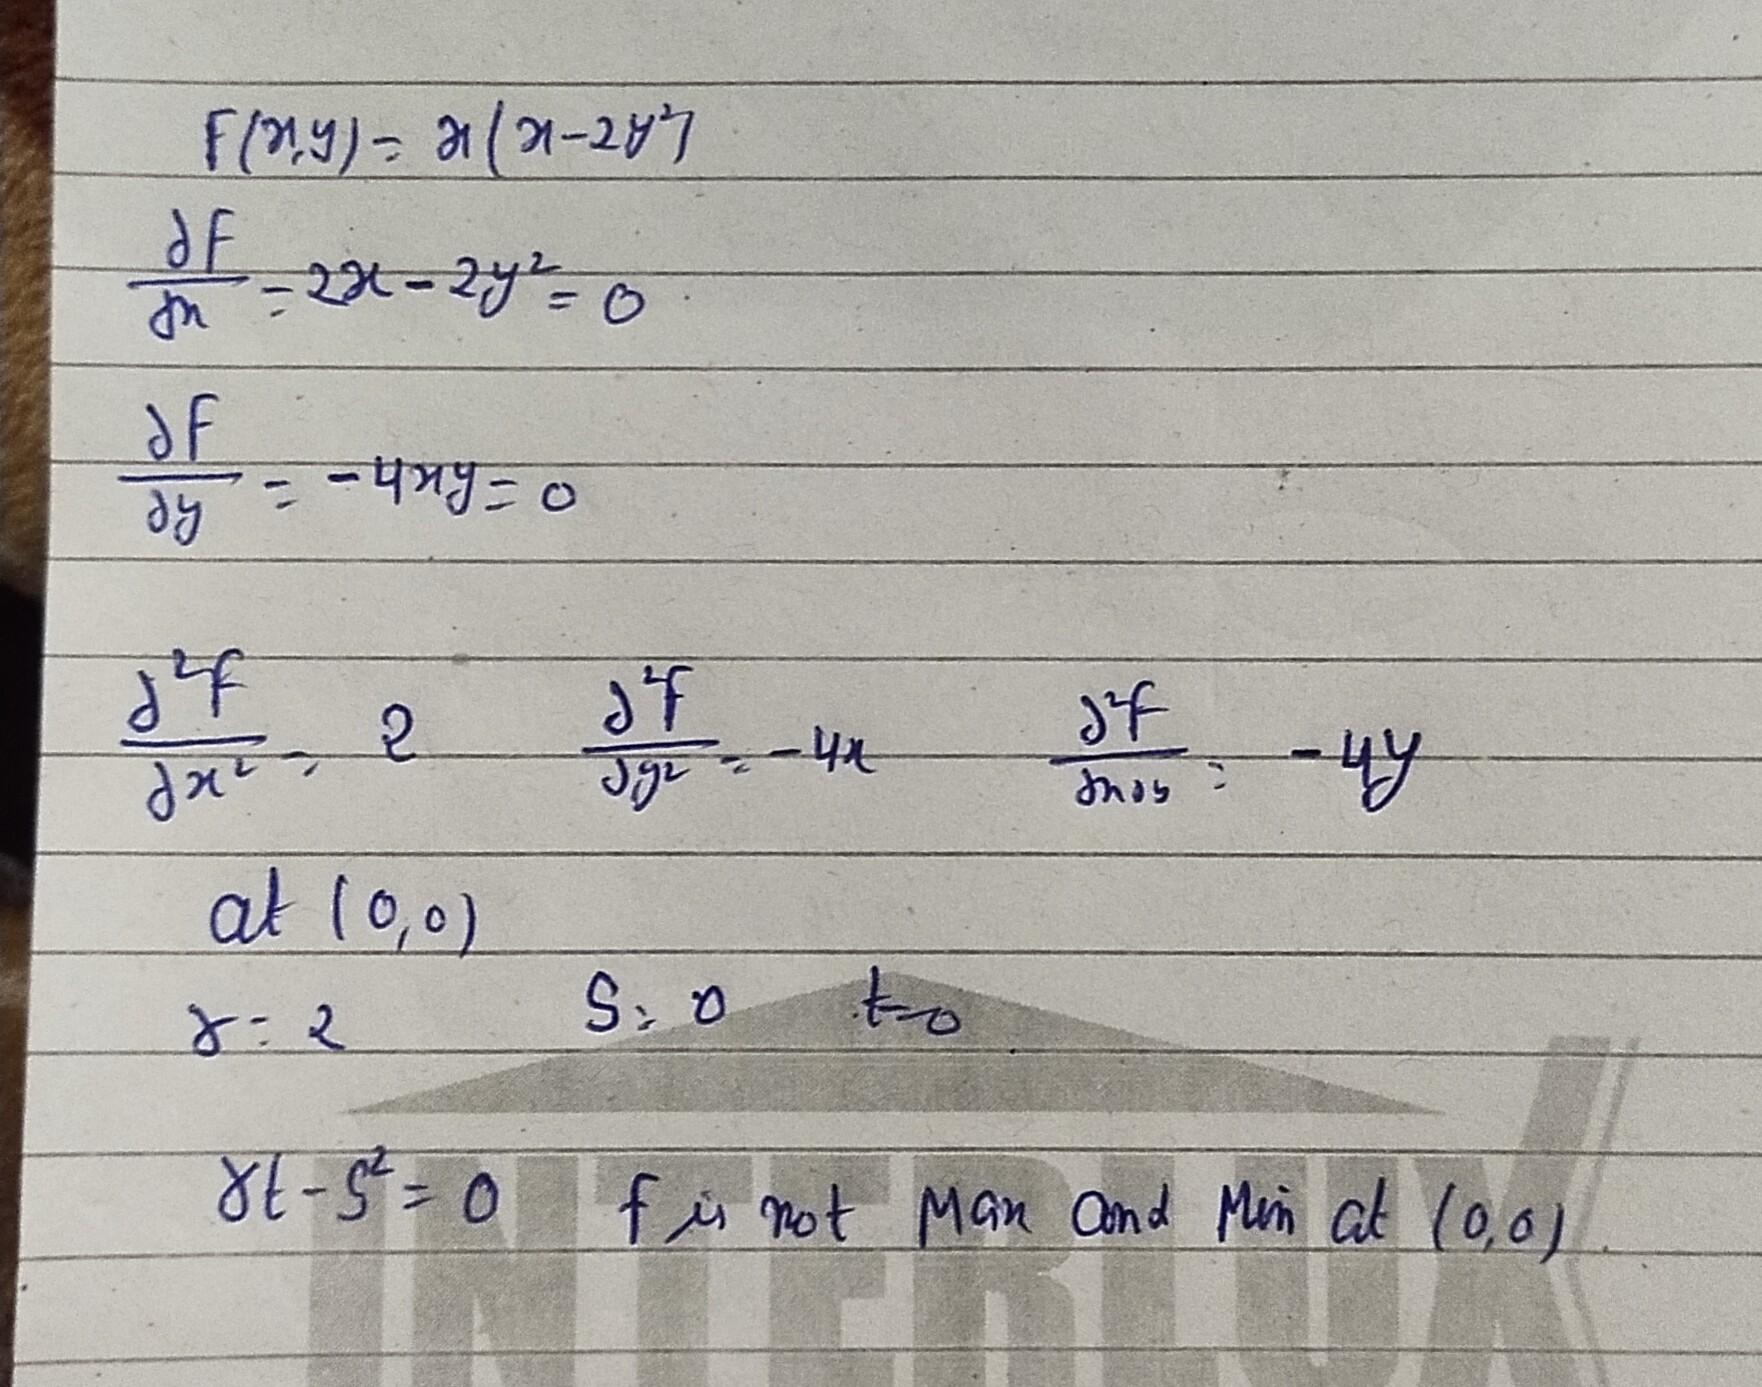 F(x,y) = x(x-2y²)
∂F/∂x = 2x - 2y² = 0
∂F/∂y = -4xy = 0
∂²f/∂x² = 2 ∂²f/∂y² = -4x ∂²f/∂x∂y = -4y
at (0,0)
r = 2 S = 0 t=0
rt - S² = 0 f is not Max and Min at (0,0)
INTERLUX